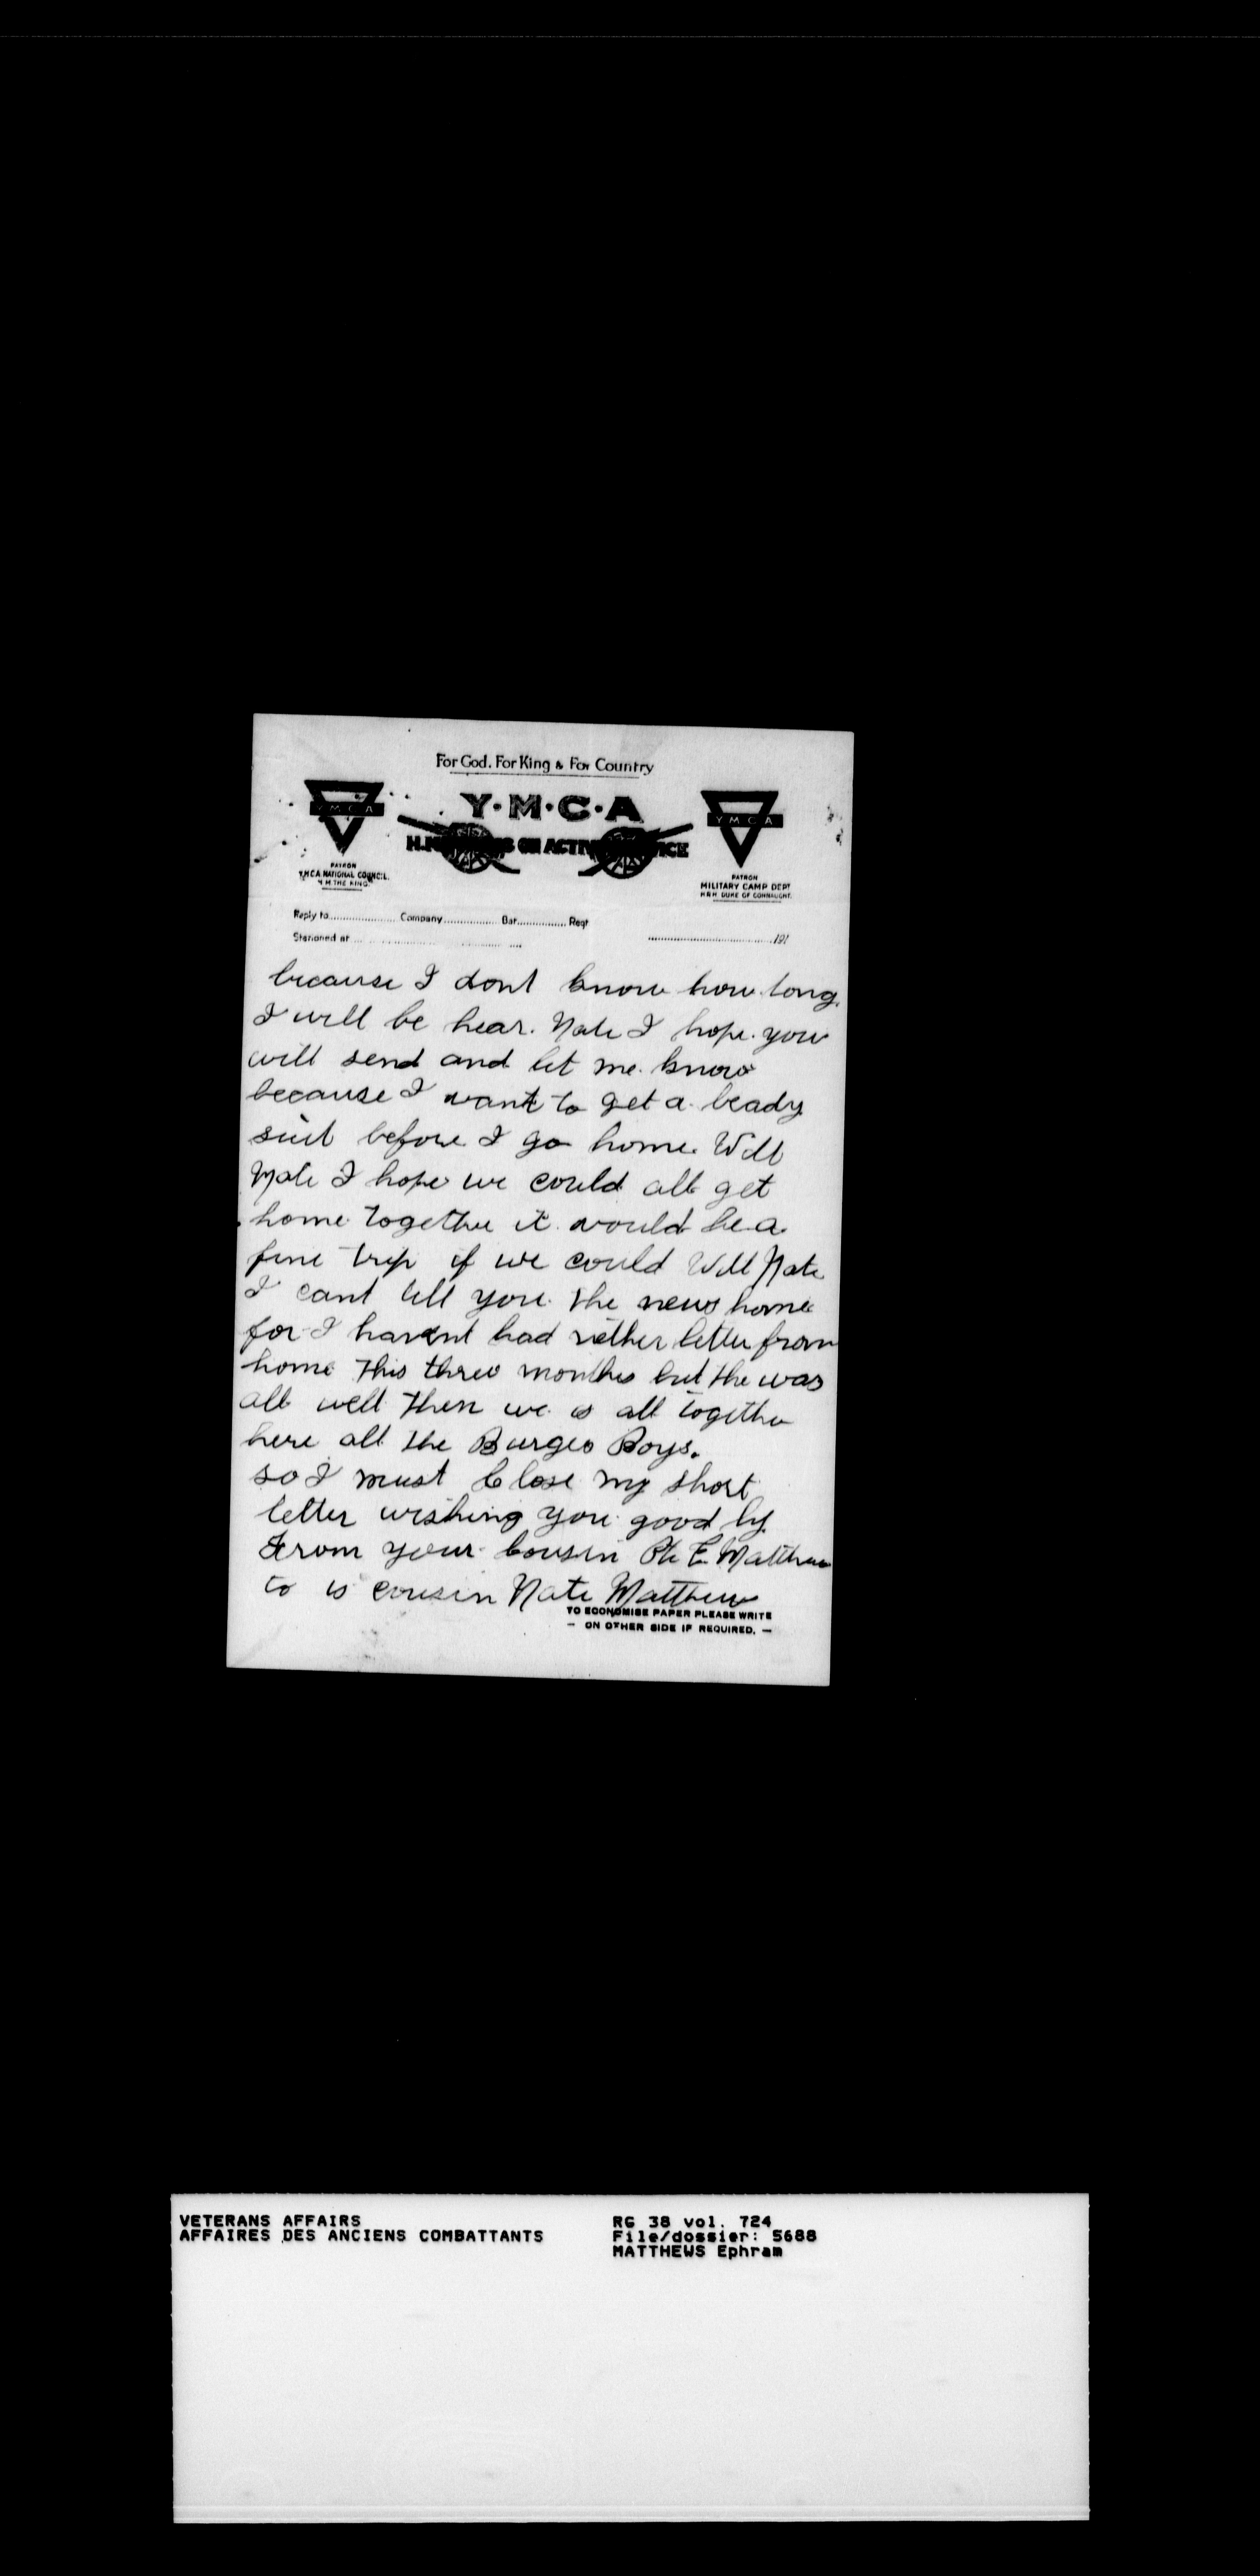 For God. For King & For Country
Y·M·C·A
H.M. ON ACTIVE SERVICE
YMCA
YMCA
PATRON
Y.M.C.A. NATIONAL COUNCIL.
H.M. THE KING.
PATRON
MILITARY CAMP DEPT
H.R.H. DUKE OF CONNAUGHT.
Reply to.................... Company................ Bat............... Regt
Stationed at.................... ....................................191
because I dont know how long.
I will be hear. Nate I hope you
will send and let me know
because I want to get a ready
suit before I go home. Will
Nate I hope we could all get
home together it would be a
fine trip if we could Will Nate
I cant tell you the news home
for I havent had nether letter from
home this three months but the was
all well then we is all together
here all the Burgeo Boys.
so I must Close my short
letter wishing you good by.
From your Cousin Pte E. Matthews
to is cousin Nate Matthews
TO ECONOMISE PAPER PLEASE WRITE
— ON OTHER SIDE IF REQUIRED. —
VETERANS AFFAIRS RG 38 vol. 724
AFFAIRES DES ANCIENS COMBATTANTS File/dossier: 5688
MATTHEWS Ephram